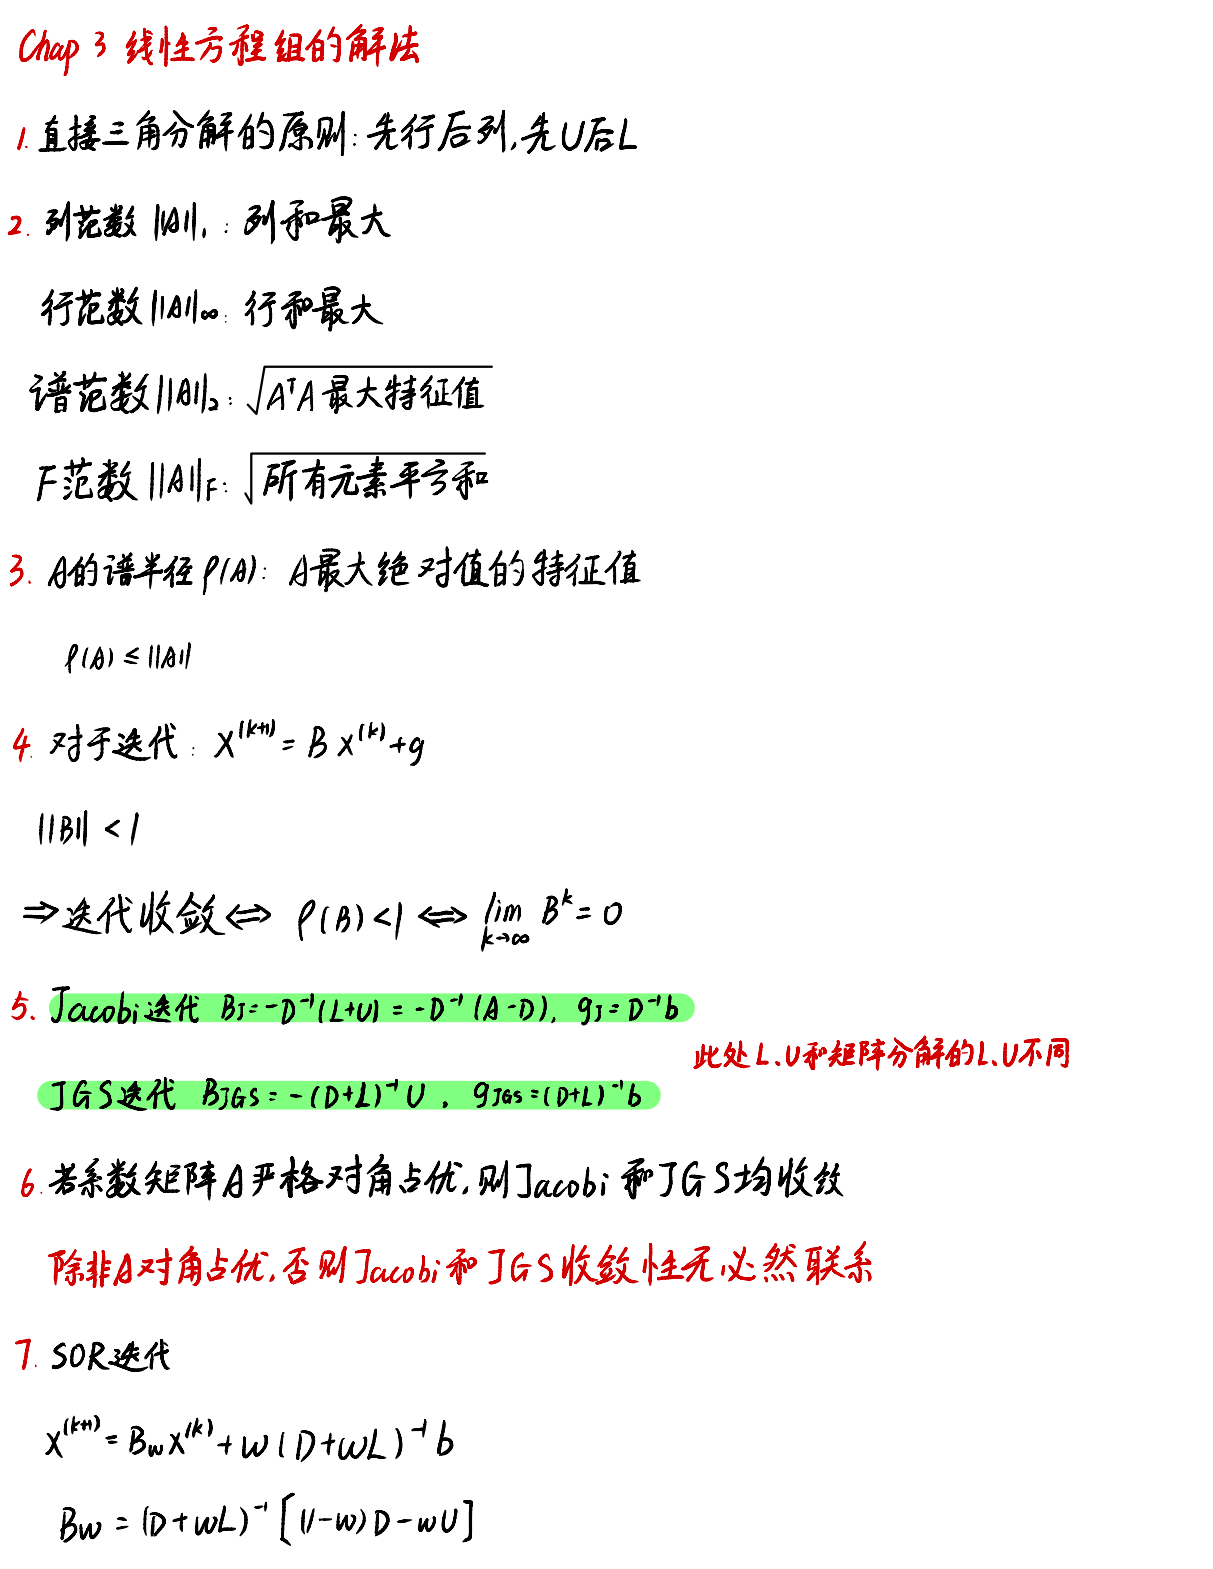 Chap 3 线性方程组的解法
1. 直接三角分解的原则: 先行后列,先U后L
2. 列范数 ||A||₁ : 列和最大
行范数 ||A||∞: 行和最大
谱范数 ||A||₂: √(AᵀA 最大特征值)
F范数 ||A||F: √(所有元素平方和)
3. A的谱半径 ρ(A): A最大绝对值的特征值
ρ(A) ≤ ||A||
4. 对于迭代: X^(k+1) = B X^(k) + g
||B|| < 1
⇒ 迭代收敛 ⇔ ρ(B) < 1 ⇔ lim_{k→∞} B^k = 0
5. Jacobi迭代 B_J = -D⁻¹(L+U) = -D⁻¹(A-D), g_J = D⁻¹b
此处L.U和矩阵分解的L.U不同
JGS迭代 B_JGS = -(D+L)⁻¹U, g_JGS = (D+L)⁻¹b
6. 若系数矩阵A严格对角占优,则Jacobi和JGS均收敛
除非A对角占优,否则Jacobi和JGS收敛性无必然联系
7. SOR迭代
X^(k+1) = B_w X^(k) + w(D+wL)⁻¹b
B_w = (D+wL)⁻¹[(1-w)D-wU]